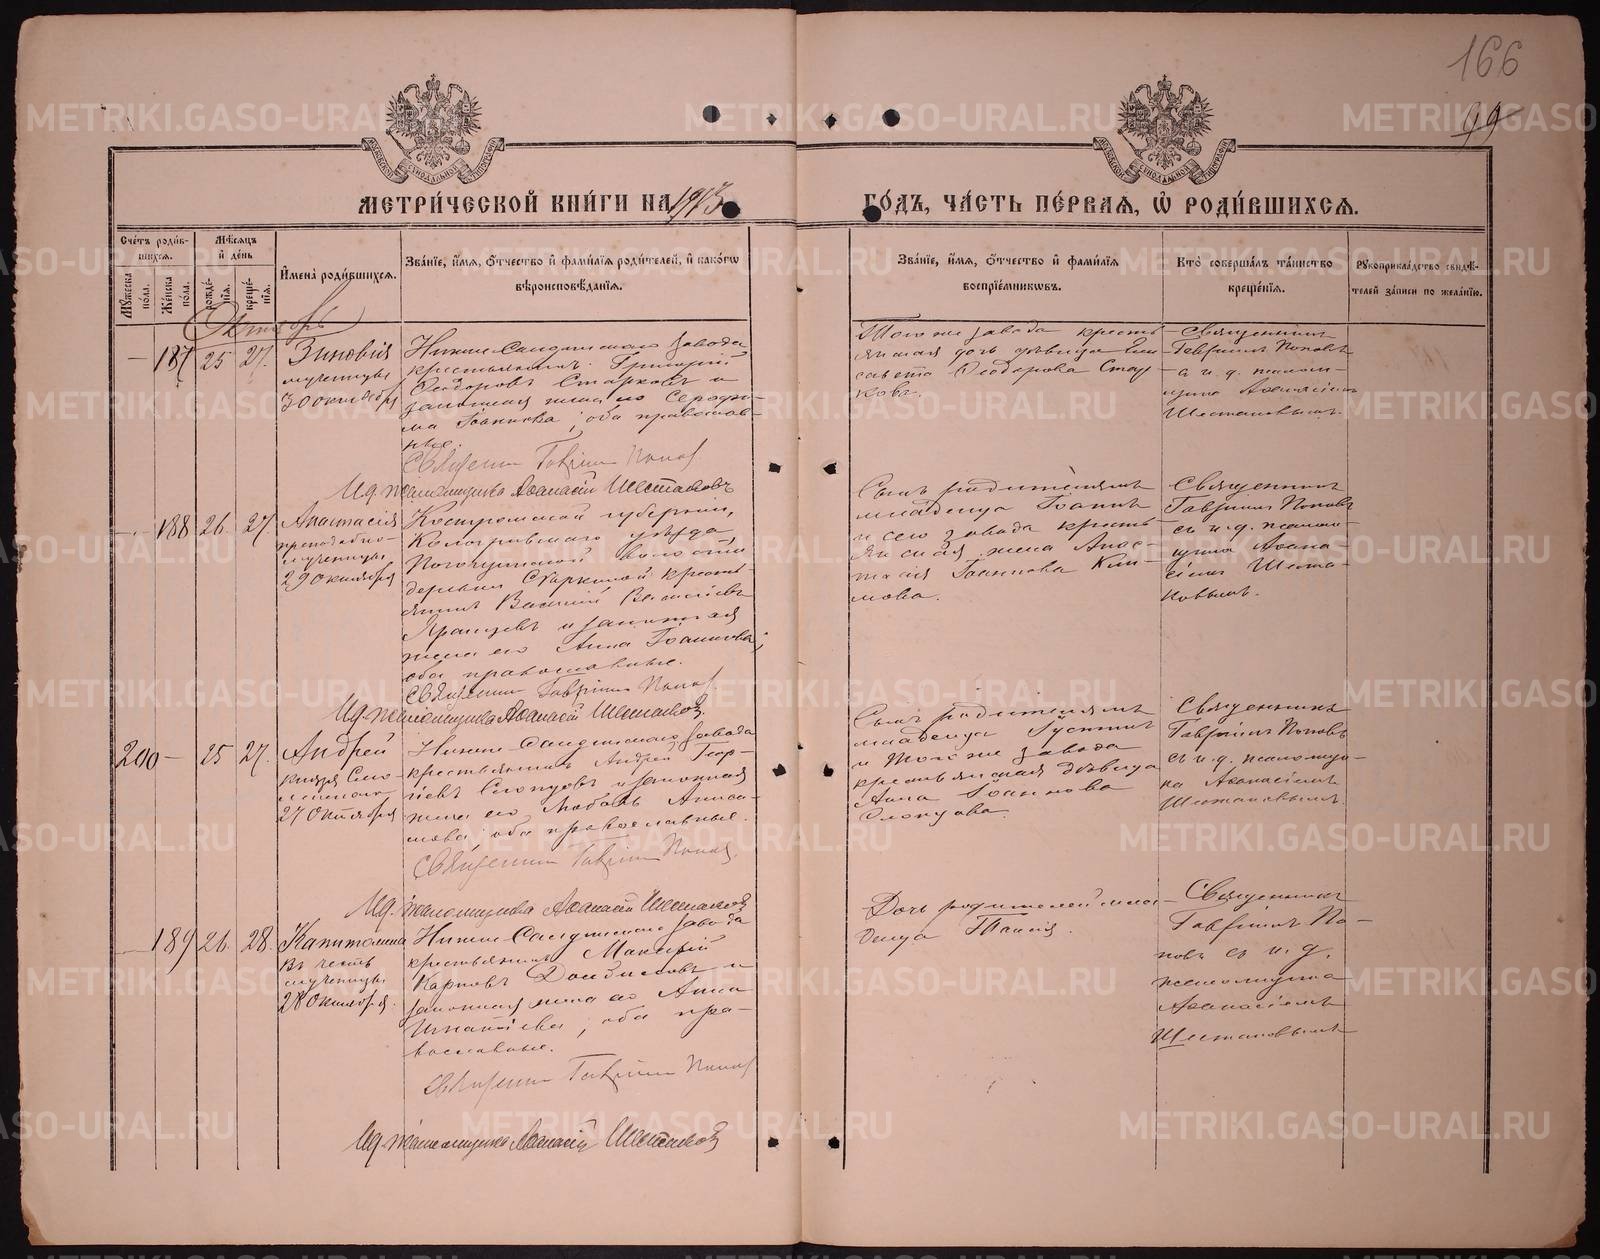 166
99
МЕТРИ́ЧЕСКОЙ КНИ́ГИ НА 1913 ГО́ДЪ, ЧА́СТЬ ПЕ́РВАЯ, Ѡ РОДИ́ВШИХСЯ.
Сче́тъ роди́вшихся.
Му́жеска по́ла.
Же́нска по́ла.
Мѣ́сяцъ и҆ де́нь
рожде́нїя.
креще́нїя.
И҆мена̀ роди́вшихся.
Зва́нїе, и҆́мя, ѻ҆́тчество и҆ фами́лїя роди́телей, и҆ како́гѡ
вѣроисповѣ́данїя.
Зва́нїе, и҆́мя, ѻ҆́тчество и҆ фами́лїя
воспрїе́мниковъ.
Кто̀ соверша́лъ та́инство
креще́нїя.
Рꙋкоприкла́дство свидѣ́-
телей за́писи по жела́нїю.
Октябрь
— 187 25 27.
Зиновія
мученицы
30 октября
Нижне-Салдинскаго завода
крестьянинъ Григорій
Ѳеодоровъ Старковъ и
законная жена его Серафи-
ма Іоаннова; оба православ-
ные.
Священникъ Гавріилъ Поповъ
И.д. псаломщика Аѳанасій Шестаковъ
Того же завода кресть-
янская дочь дѣвица Ели-
савета Ѳеодорова Стар-
кова.
Священникъ
Гавріилъ Поповъ
с и. д. псалом-
щика Аѳанасіемъ
Шестаковымъ.
— 188 26 27.
Анастасія
преподобно-
мученицы
29 октября
Костромской губерніи,
Кологривскаго уѣзда
волости
деревни кресть-
янинъ Василій Васильевъ
и законная
жена его Анна Іоаннова;
оба православные.
Священникъ Гавріилъ Поповъ
И.д. псаломщика Аѳанасій Шестаковъ
Сынъ родителямъ
младенца Іоаннъ
и сего завода кресть-
янская жена Анас-
тасія Іоаннова Кли-
мова.
Священникъ
Гавріилъ Поповъ
съ и. д. псалом-
щика Аѳана-
сіемъ Шеста-
ковымъ.
200 — 25 27.
Андрей
князя Смо-
ленскаго
27 Октября
Нижне-Салдинскаго завода
крестьянинъ Андрей Геор-
гіевъ и законная
жена его Любовь
оба православные.
Священникъ Гавріилъ Поповъ
И.д. псаломщика Аѳанасій Шестаковъ
Сынъ родителямъ
младенца Іустинъ
и того же завода
крестьянская дѣвица
Анна Іоаннова
Священникъ
Гавріилъ Поповъ
съ и.д. псаломщи-
ка Аѳанасіемъ
Шестаковымъ.
— 189 26. 28.
Капитолина
въ честь
мученицы
28 Октября.
Нижне-Салдинскаго завода
крестьянинъ Максимъ
Карповъ и
законная жена его Анна
Игнатіева; оба пра-
вославные.
Священникъ Гавріилъ Поповъ
И.д. псаломщика Аѳанасій Шестаковъ
Дочь родителей мла-
денца Таисія.
Священникъ
Гавріилъ По-
повъ съ и. д.
псаломщика
Аѳанасіемъ
Шестаковымъ
METRIKI.GASO-URAL.RU